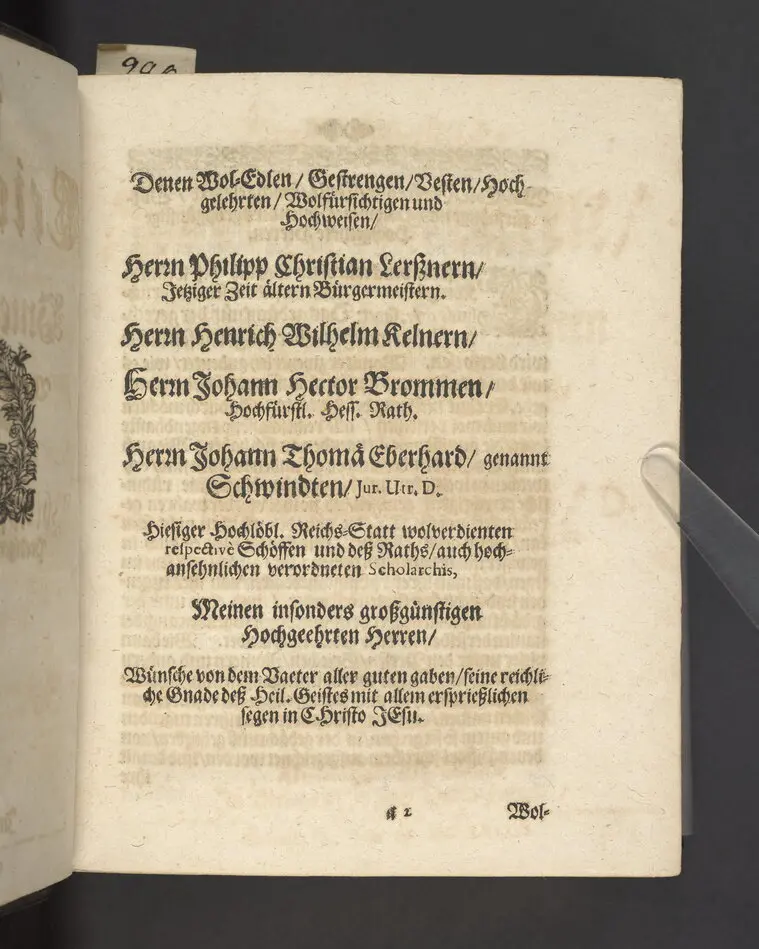 990
Denen Wol-Edlen / Gestrengen / Vesten / Hoch-
gelehrten / Wolfürsichtigen und
Hochweisen /
Herrn Philipp Christian Lerßnern /
Jetziger Zeit ältern Bürgermeistern.
Herrn Henrich Wilhelm Kelnern /
Herrn Johann Hector Brommen /
Hochfürstl. Hess. Rath.
Herrn Johann Thomä Eberhard / genannt
Schwindten / Jur. Utr. D.
Hiesiger Hochlöbl. Reichs-Statt wolverdienten
respectivè Schöffen und deß Raths / auch hoch-
ansehnlichen verordneten Scholarchis,
Meinen insonders großgünstigen
Hochgeehrten Herren /
Wünsche von dem Vaeter aller guten gaben / seine reichli-
che Gnade deß Heil. Geistes mit allem ersprießlichen
segen in CHristo JEsu.
a 2
Wol-